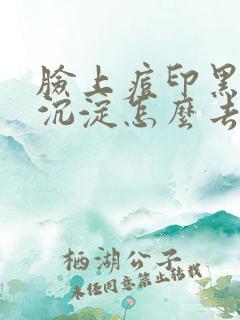 臉上痘印黑
沉淀怎麼去
栖湖公子
未经同意禁止转载